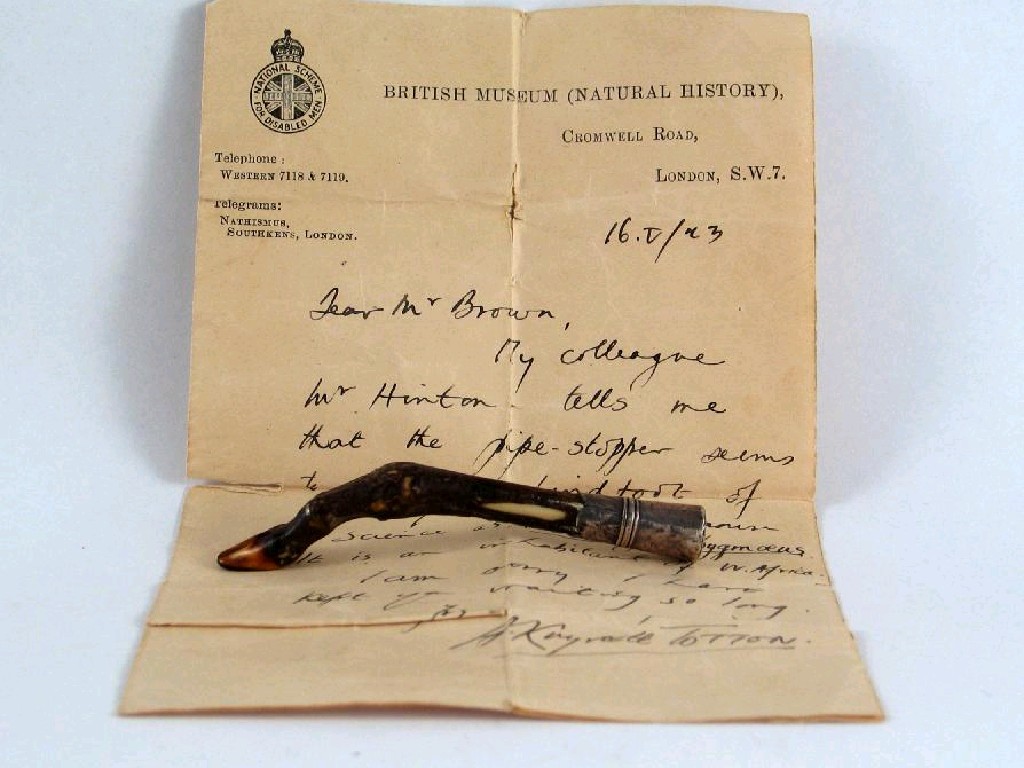 NATIONAL SCHEME
FOR DISABLED MEN
BRITISH MUSEUM (NATURAL HISTORY),
CROMWELL ROAD,
LONDON, S.W.7.
Telephone:
WESTERN 7118 & 7119.
Telegrams:
NATHISMUS,
SOUTHKENS, LONDON.
16.V/23
Dear Mr Brown,
My colleague
Mr Hinton tells me
that the pipe-stopper seems
to hind foot of
science as
It is an inhabitant of W. Africa.
I am sorry I have
kept you waiting so long.
A. Knyvett Totton.